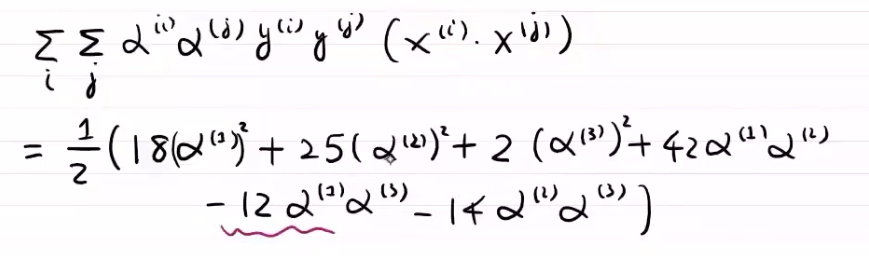 Σ Σ α⁽ⁱ⁾ α⁽ʲ⁾ y⁽ⁱ⁾ y⁽ʲ⁾ (x⁽ⁱ⁾ · x⁽ʲ⁾)
i j
= 1/2 (18(α⁽¹⁾)² + 25(α⁽²⁾)² + 2 (α⁽³⁾)² + 42 α⁽¹⁾ α⁽²⁾
- 12 α⁽¹⁾ α⁽³⁾ - 14 α⁽²⁾ α⁽³⁾ )